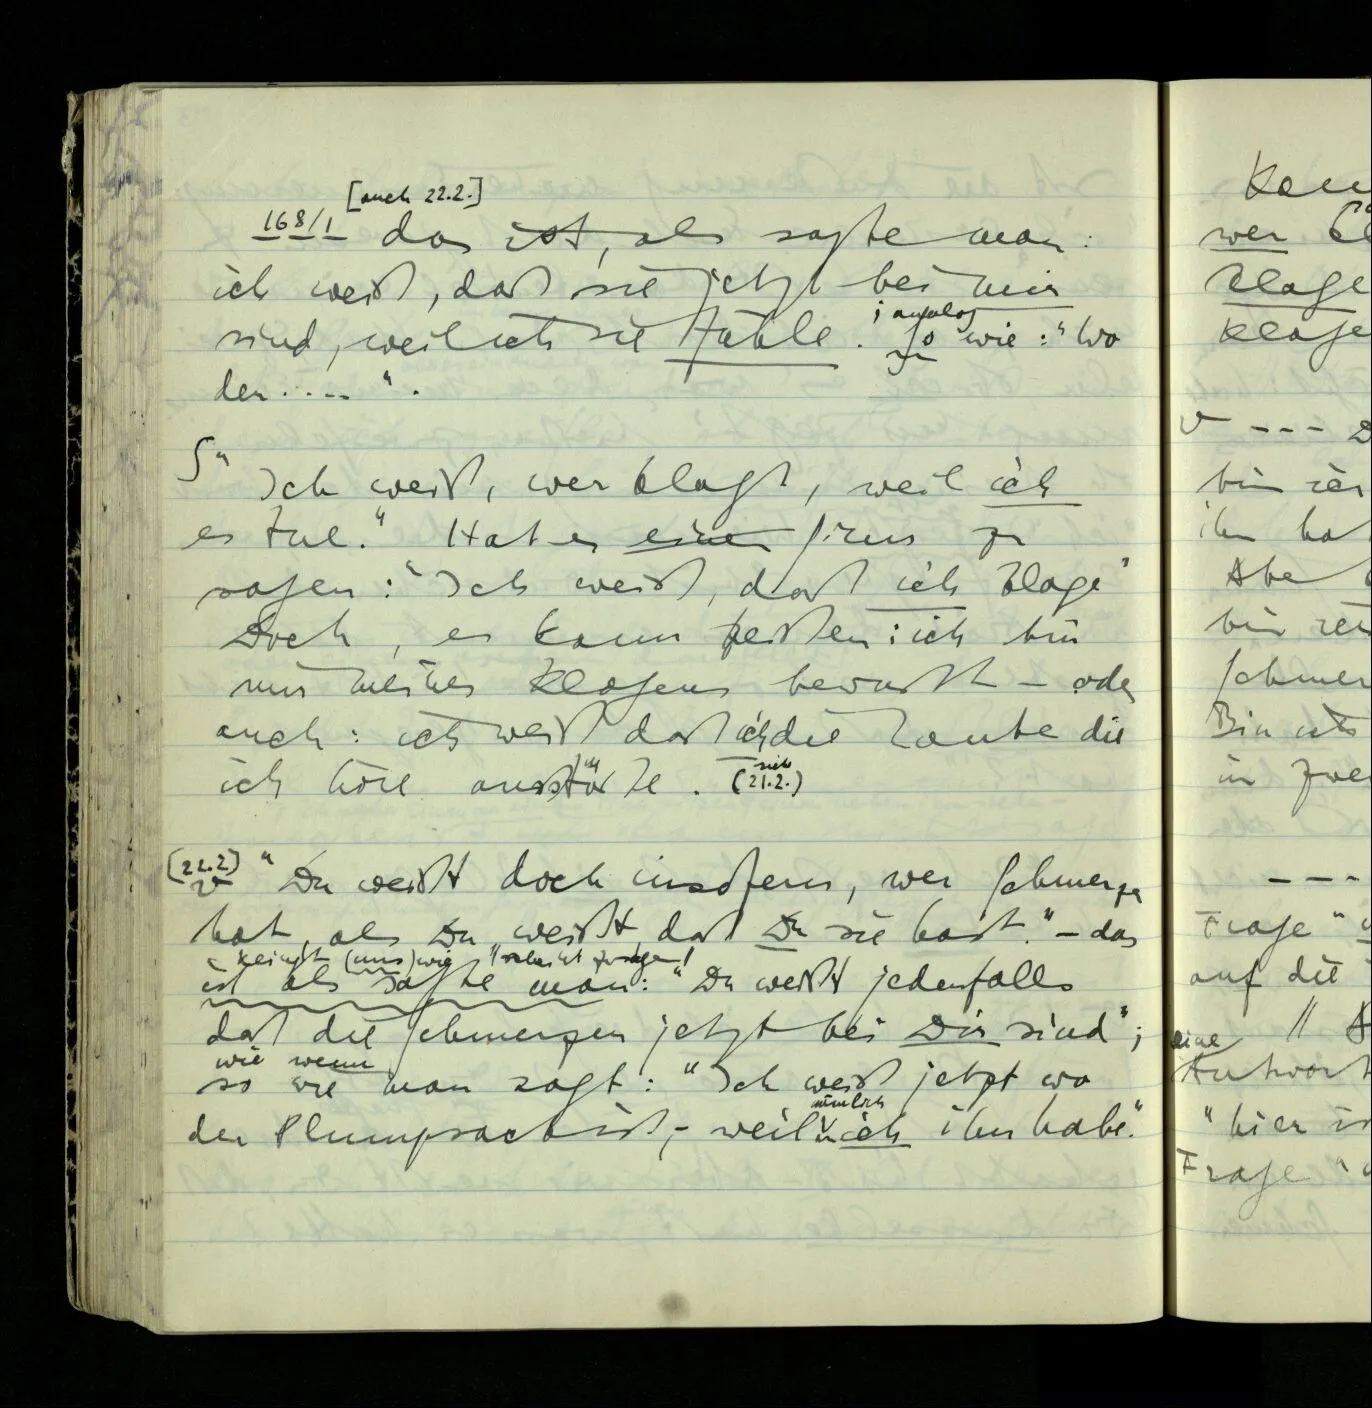 [auch 22.2.]
168/1 das ist, als sagte man:
ich weiß, daß sie jetzt bei mir
; analog
sind, weil ich sie fühle. So wie: "Wo
der .... ".
S "Ich weiß, wer klagt, weil ich
es tue." Hat es einen Sinn zu
sagen: "Ich weiß, daß ich klage"
Doch, es kann heißen: ich bin
mir meines Klagens bewußt – oder
auch: ich weiß daß ich die Laute die
ich höre ausstoße. (sieh 21.2.)
(22.2)
v "Du weißt doch insofern, wer Schmerzen
hat, als Du weißt daß Du sie hast." – das
(uns) wie
ist als sagte man: "Du weißt jedenfalls
daß die Schmerzen jetzt bei Dir sind";
wie wenn
so wie man sagt: "Ich weiß jetzt wo
nämlich
der Plumpsack ist, – weil ich ihn habe."
wer
klage
v ---
bin
Aber
bin
Bin ich
in
---
Frage "
auf die
eine //
Antwort
"hier
Frage "